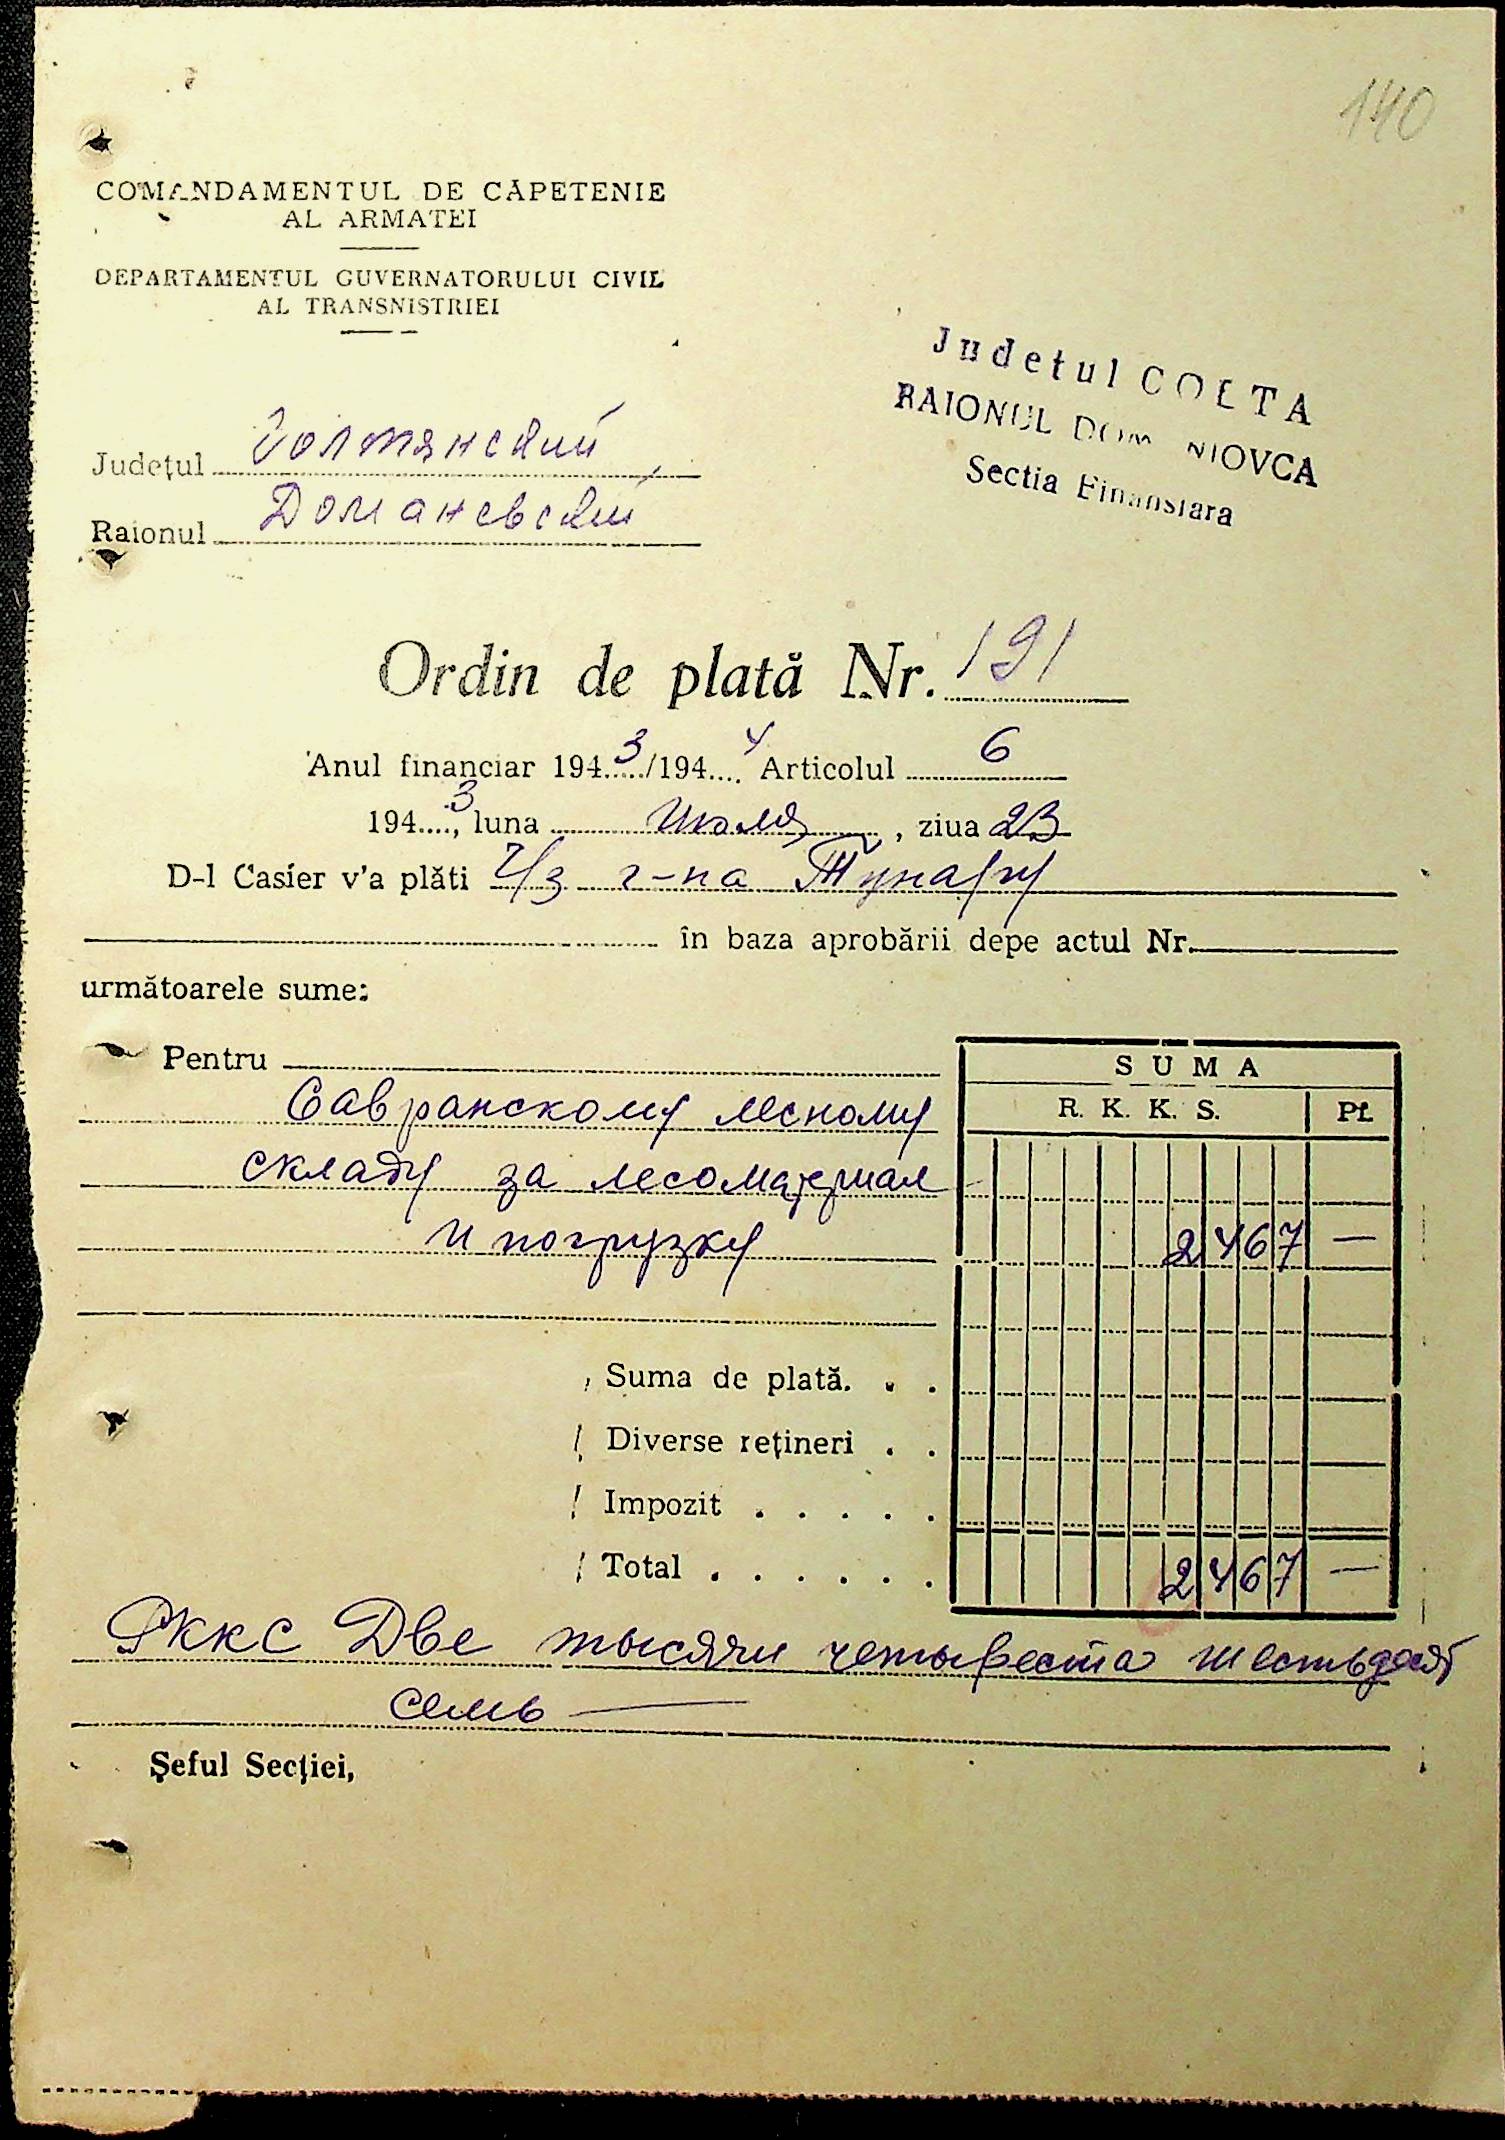 140
COMANDAMENTUL DE CĂPETENIE
AL ARMATEI
DEPARTAMENTUL GUVERNATORULUI CIVIL
AL TRANSNISTRIEI
Judetul GOLTA
RAIONUL DOMANIOVCA
Sectia Finansiara
Județul Голтянский
Raionul Доманевский
Ordin de plată Nr. 191
Anul financiar 1943/1944 Articolul 6
1943, luna Июля, ziua 23
D-l Casier v'a plăti Ч/з г-на Тунару
în baza aprobării depe actul Nr.
următoarele sume:
Pentru
SUMA
R. K. K. S. Pf.
Савранскому лесному
складу за лесоматериал
и погрузку 2467 —
Suma de plată. . .
Diverse rețineri . .
Impozit . . . . .
Total . . . . . . 2467 —
Рккс Две тысячи четыреста шестьдесят
семь —
Șeful Secției,